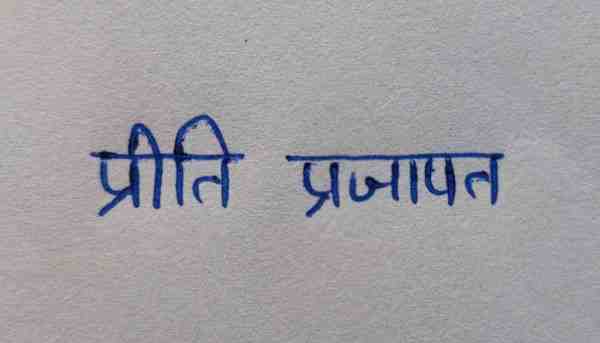 प्रीति प्रजापत